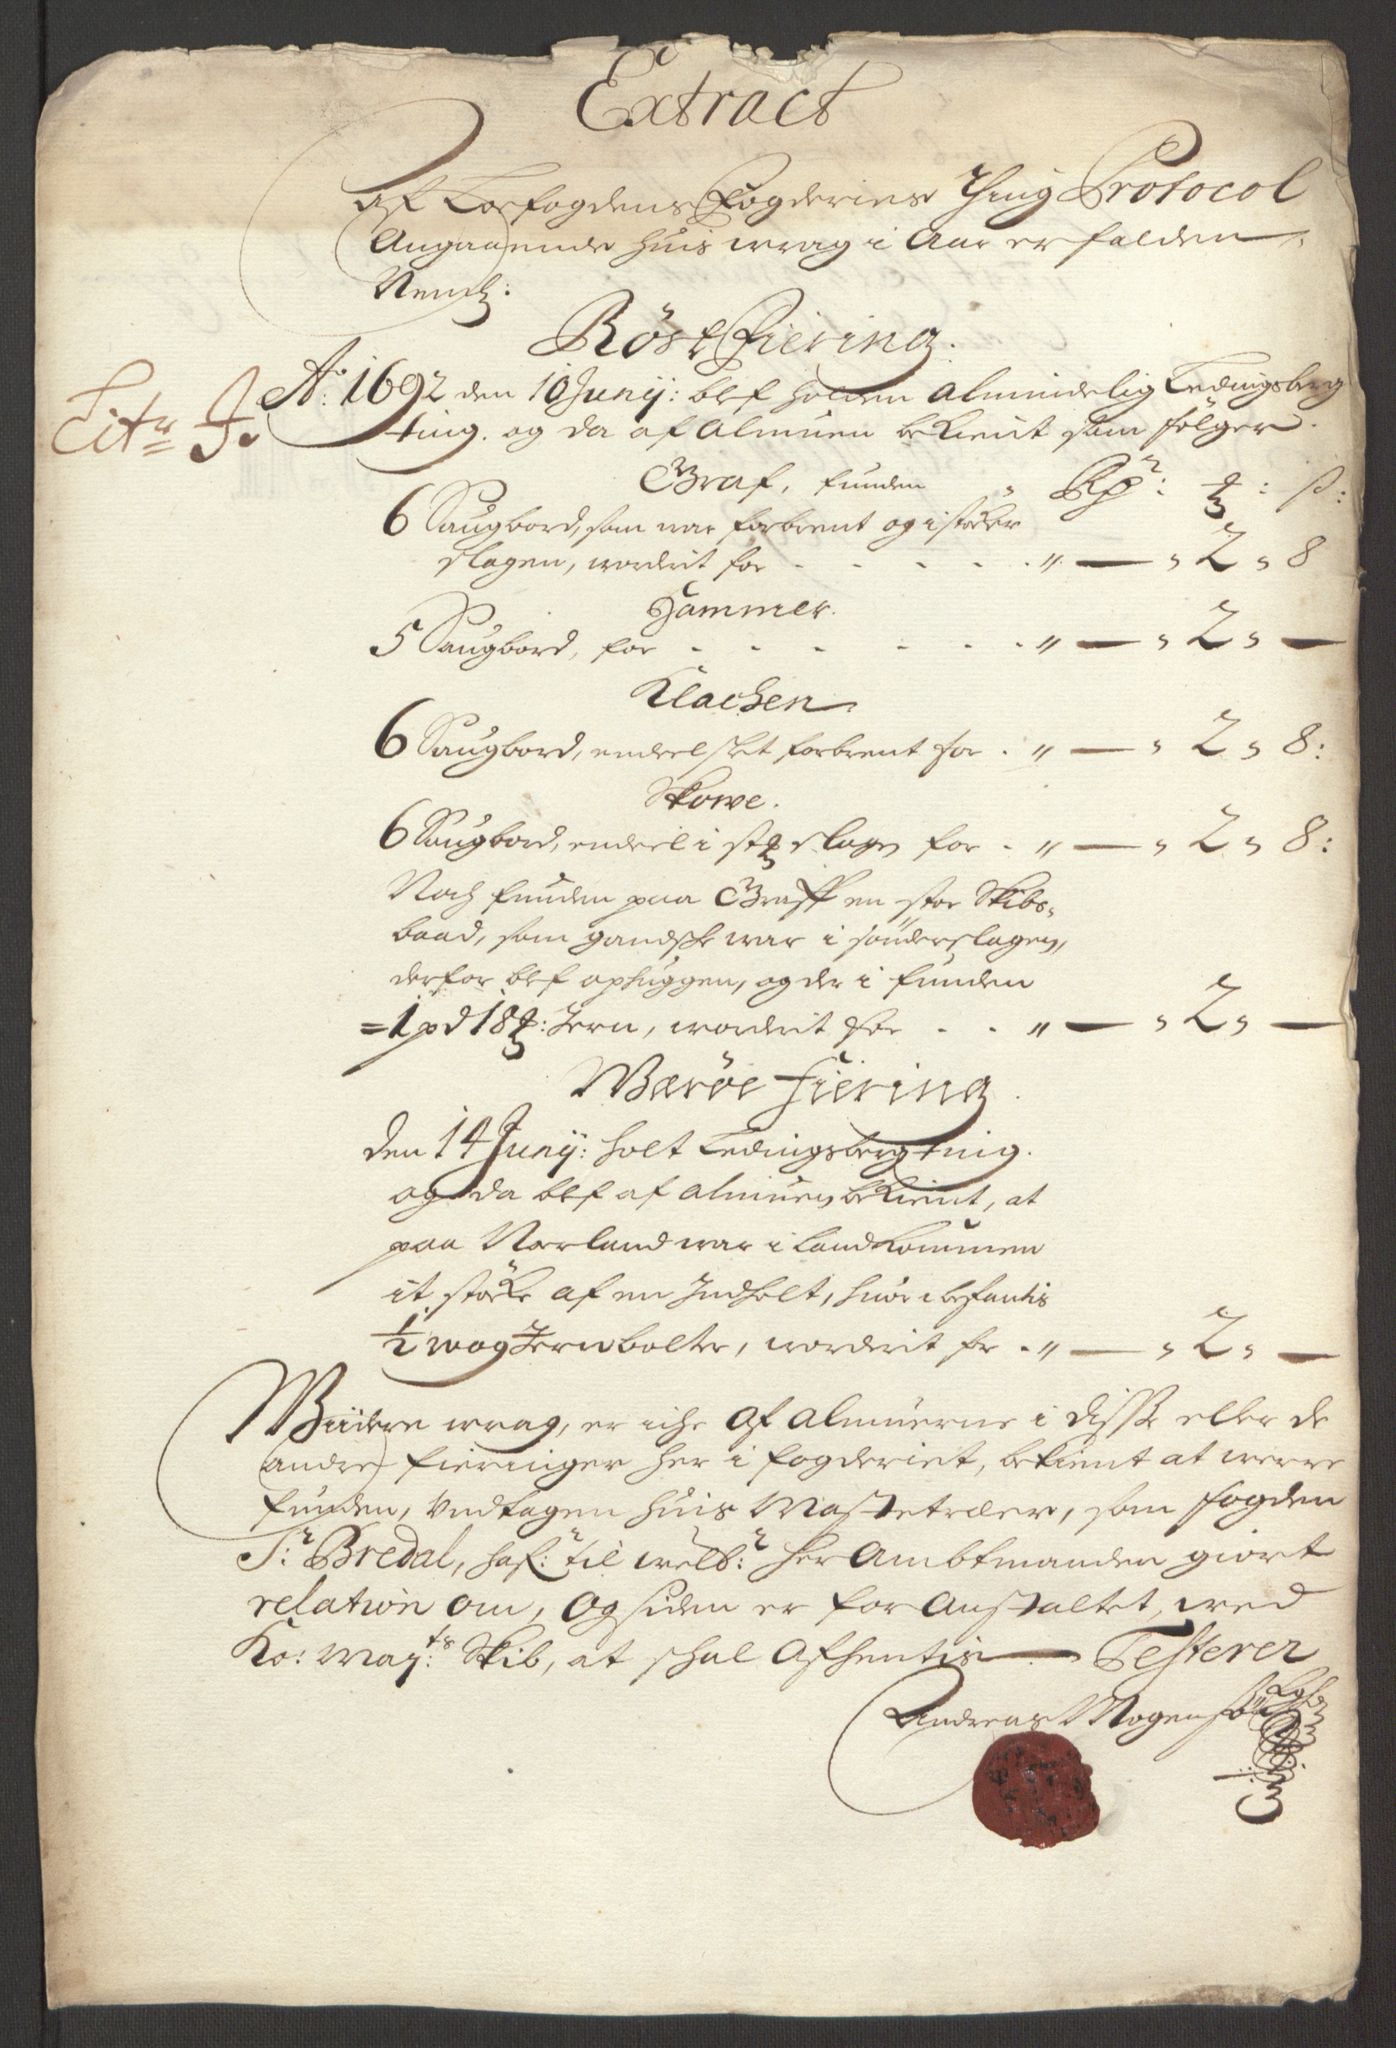 Extract
Af Lofogdens Fogderies Thing Protocol
Angaaende huis wrag i Aar er falden
Nembl:
Röst Fiering.
Litr J. Ao: 1692 den 10 Junij: blef holden almindelig Ledingsberg
ting. og da af almuen bekient som fölger.
Graf, funden Rdr: ℔: ß:
6 Saugbord, som war forbrent og i stöcker
slagen, worderit for - - - - „ — „ 2 „ 8
Hammer.
5 Saugbord, for - - - - - - „ — „ 2 „ —
Klachen
6 Saugbord, endeel sket forbrent for . „ — „ 2 „ 8:
Skowe.
6 Saugbord, endeel i st slagen for . „ — „ 2 „ 8:
Noch funden paa Graff en stor Skibs-
baad, som gandske war i sönderslagen,
derfor blef ophuggen, og der i funden
=1 pd 18 ℔: Jern, worderit for - - „ — „ 2 „ —
Weröe Fiering.
Den 14 Junij: holt Ledingsberg ting.
og da blef af almuen bekient, at
paa Norland war i land kommen
it stöcke af en Indholt, huor i befantis
½ wog Jern bolter, worderit for . „ — „ 2 „ —
Widere wrag, er iche af almuerne i disse eller de
andre fieringer her i fogderiet, bekient at were
funden, Undtagen huis Mastetræer, som fogden
Sr: Bredal, hafr: til welb:r Her Ambtmanden giort
relation om, og siden er for Anstaltet, med
Ko: May:ts Skib, at schal afhentis — Testerer
Andreas Mogensön